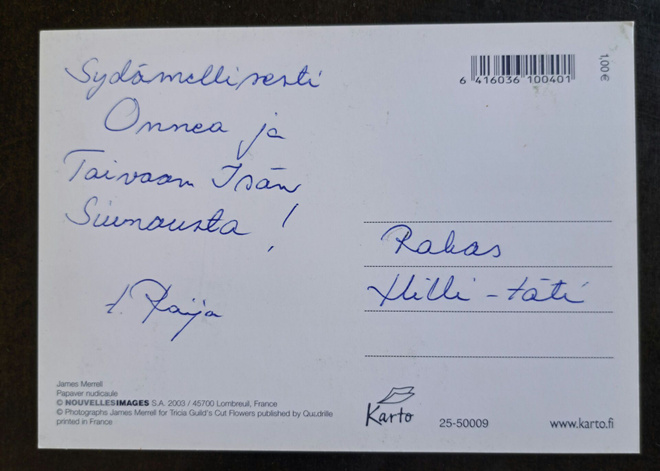 Sydämellisesti
Onnea ja
Taivaan Isän
Siunausta!
t. Raija
6 416036 100401
1,00 €
Rakas
Hilli-täti
James Merrell
Papaver nudicaule
© NOUVELLESIMAGES S.A. 2003 / 45700 Lombreuil, France
© Photographs James Merrell for Tricia Guild's Cut Flowers published by Quadrille
printed in France
Karto
25-50009
www.karto.fi